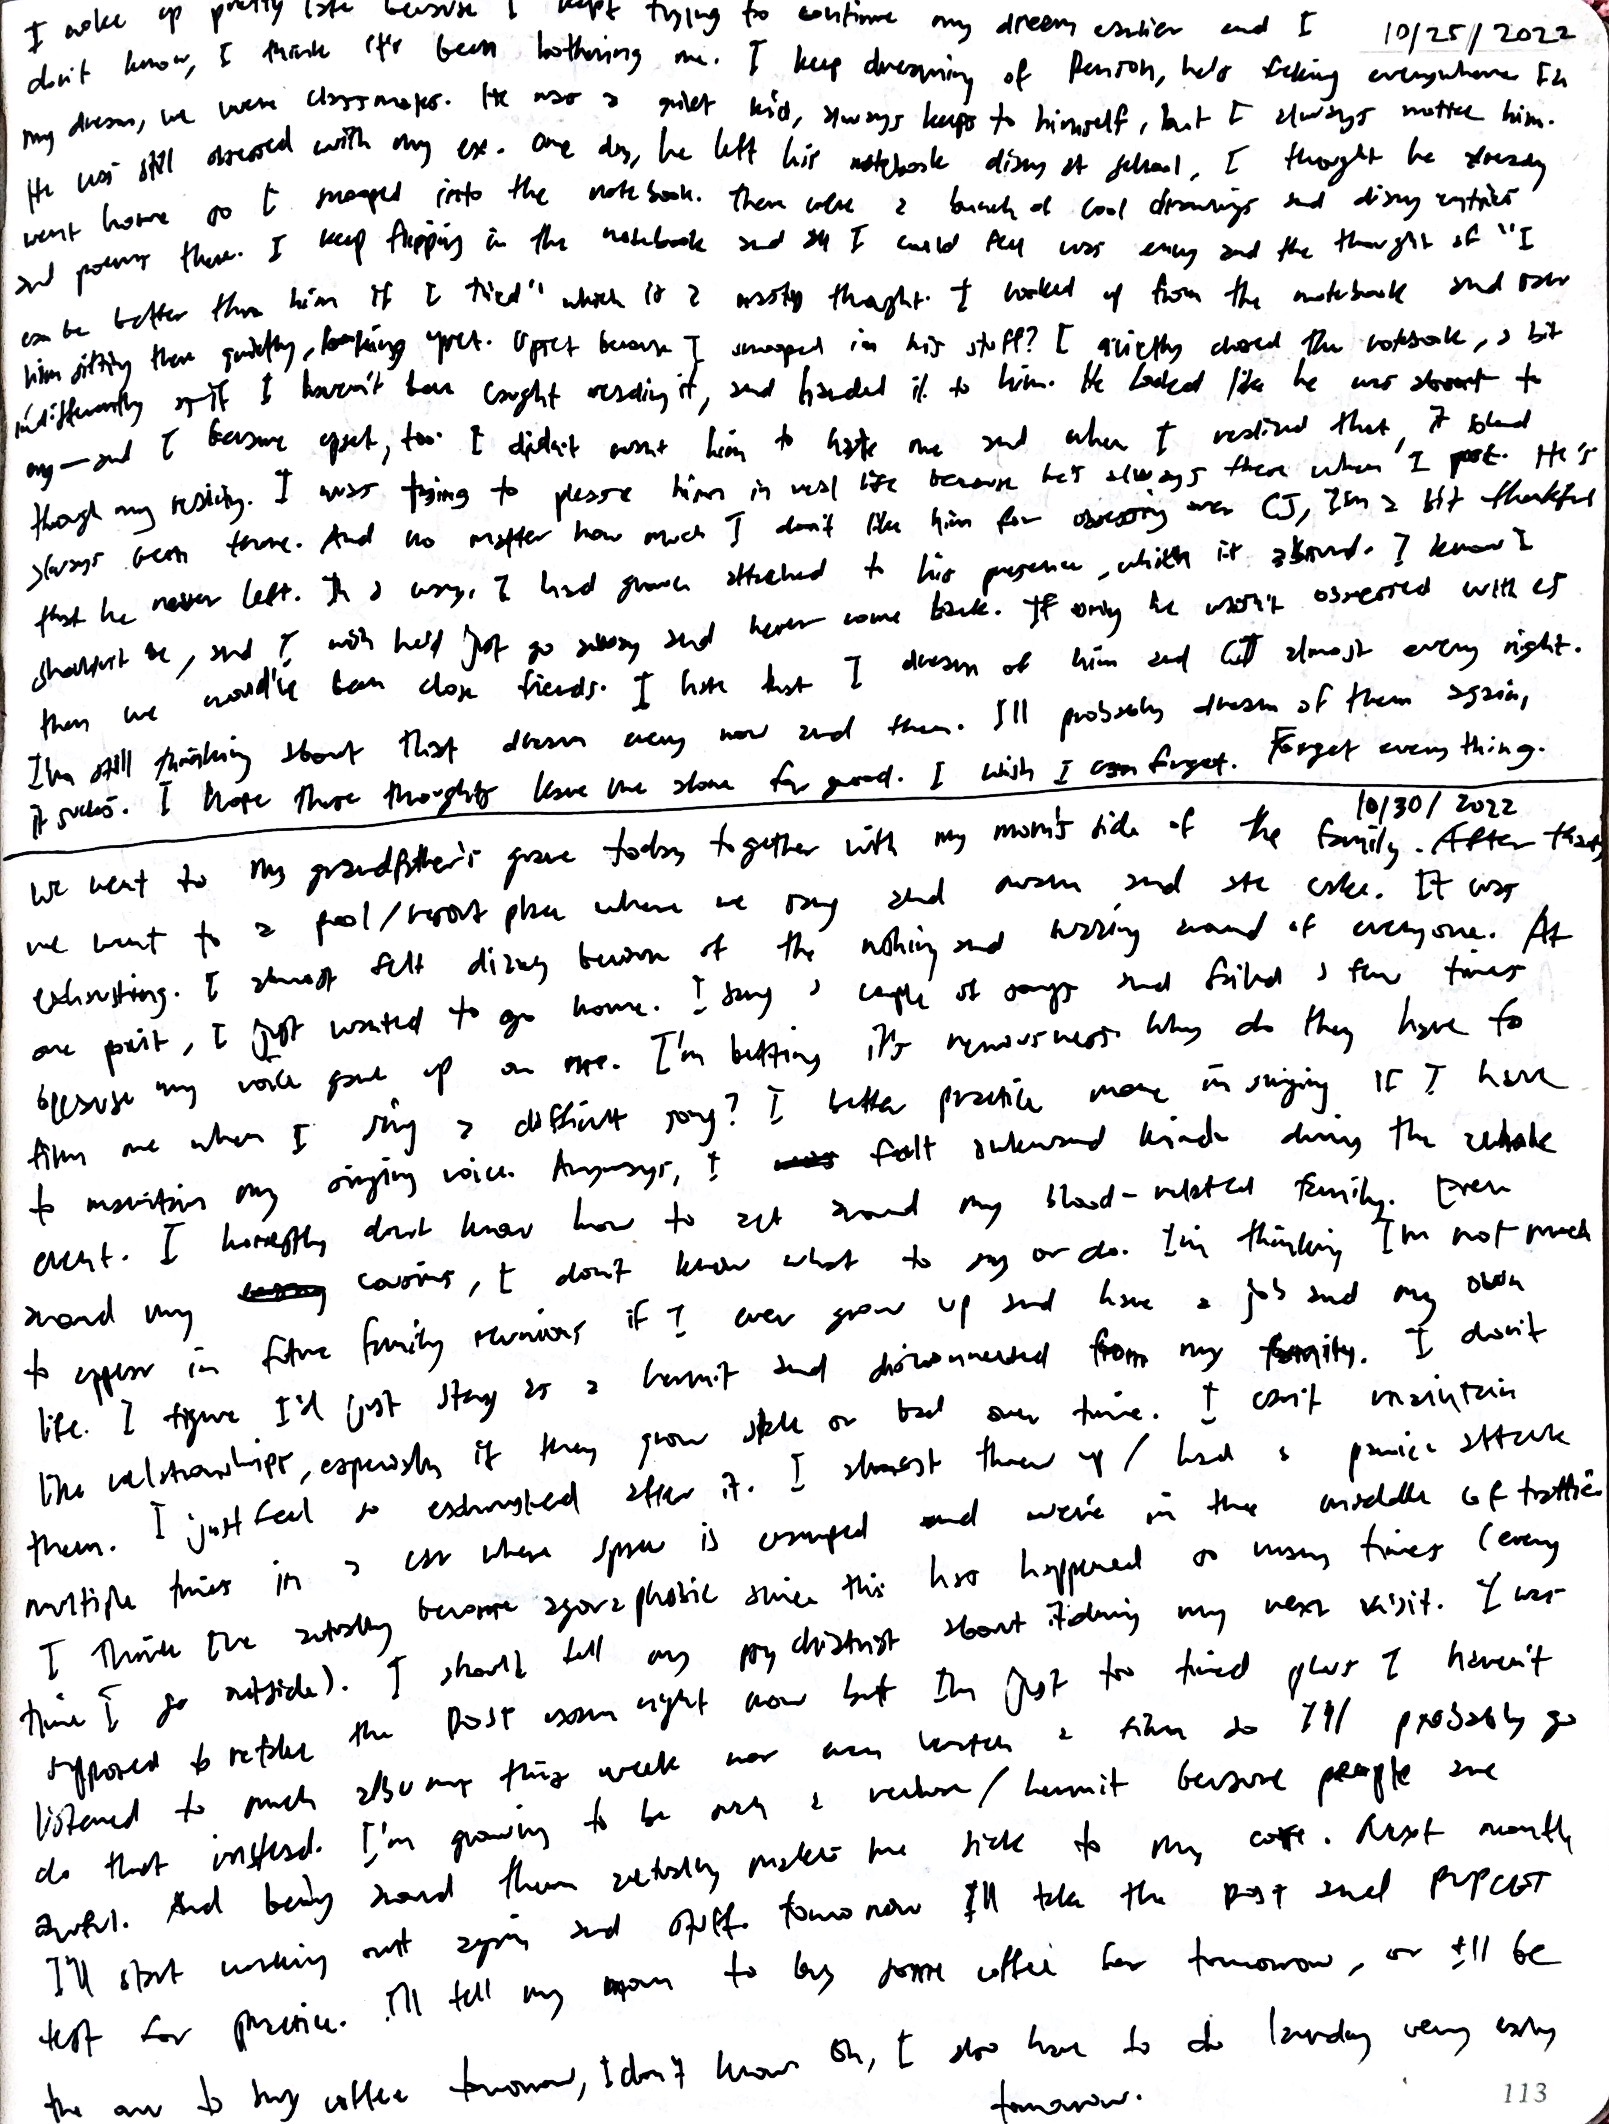 I woke up pretty late because I kept trying to continue my dream earlier and I 10/25/2022
don't know, I think it's been bothering me. I keep dreaming of , he's fcking everywhere In
my dream, we were classmates. He was a quiet kid, always keeps to himself, but I always notice him.
He was still obsessed with my ex. One day, he left his notebook diary at school, I thought he already
went home so I snooped into the notebook. There were a bunch of cool drawings and diary entries
and poems there. I keep flipping in the notebook and all I could feel was envy and the thought of "I
can be better than him if I tried" which is a nasty thought. I looked up from the notebook and saw
him sitting there quietly, looking upset. Upset because I snooped in his stuff? I quietly closed the notebook, a bit
indifferently as if I haven't been caught reading it, and handed it to him. He looked like he was about to
cry—and I became upset, too. I didn't want him to hate me and when I realized that, it bled
though my reality. I was trying to please him in real life because he's always there when I post. He's
always been there. And no matter how much I don't like him for obsessing over CJ, I'm a bit thankful
that he never left. In a way, I had grown attached to his presence, which is absurd. I know I
shouldn't be, and I wish he'd just go away and never come back. If only he wasn't obsessed with CJ
then we would've been close friends. I hate that I dream of him and CJ almost every night.
I'm still thinking about that dream every now and then. I'll probably dream of them again,
it sucks. I hope these thoughts leave me alone for good. I wish I can forget. Forget everything.
10/30/2022
We went to my grandfather's grave today together with my mom's side of the family. After that,
we went to a pool/resort place where we sang and swam and ate cake. It was
exhausting. I almost felt dizzy because of the noise and around of everyone. At
one point, I just wanted to go home. I sang a couple of songs and failed a few times
because my voice gave up on me. I'm betting it's nervousness. Why do they have to
film me when I sing a difficult song? I better practice more in singing if I have
to maintain my singing voice. Anyways, I was felt awkward kinda during the whole
event. I honestly don't know how to act around my blood-related family. Even
around my cousins, I don't know what to say or do. I'm thinking I'm not much
to appear in future family reunions if I ever grow up and have a job and my own
life. I figure I'd just stay as a hermit and disconnected from my family. I don't
like relationships, especially if they grow stale or bad over time. I can't maintain
them. I just feel so exhausted after it. I almost threw up / had a panic attack
multiple times in a car where space is cramped and we're in the middle of traffic
I think I've actually become agoraphobic since this has happened so many times (every
time I go outside). I should tell my psychiatrist about it during my next visit. I was
supposed to retake the DOST exam right now but I'm just too tired plus I haven't
listened to much albums this week nor even watch a film so I'll probably go
do that instead. I'm growing to be such a recluse/hermit because people are
awful. And being around them actually makes me sick to my core. Next month
I'll start working out again and stuff. Tomorrow I'll take the DOST and PUPCET
test for practice. I'll tell my mom to buy some coffee for tomorrow, or I'll be
the one to buy coffee tomorrow, I don't know. Oh, I also have to do laundry very early
tomorrow.
113